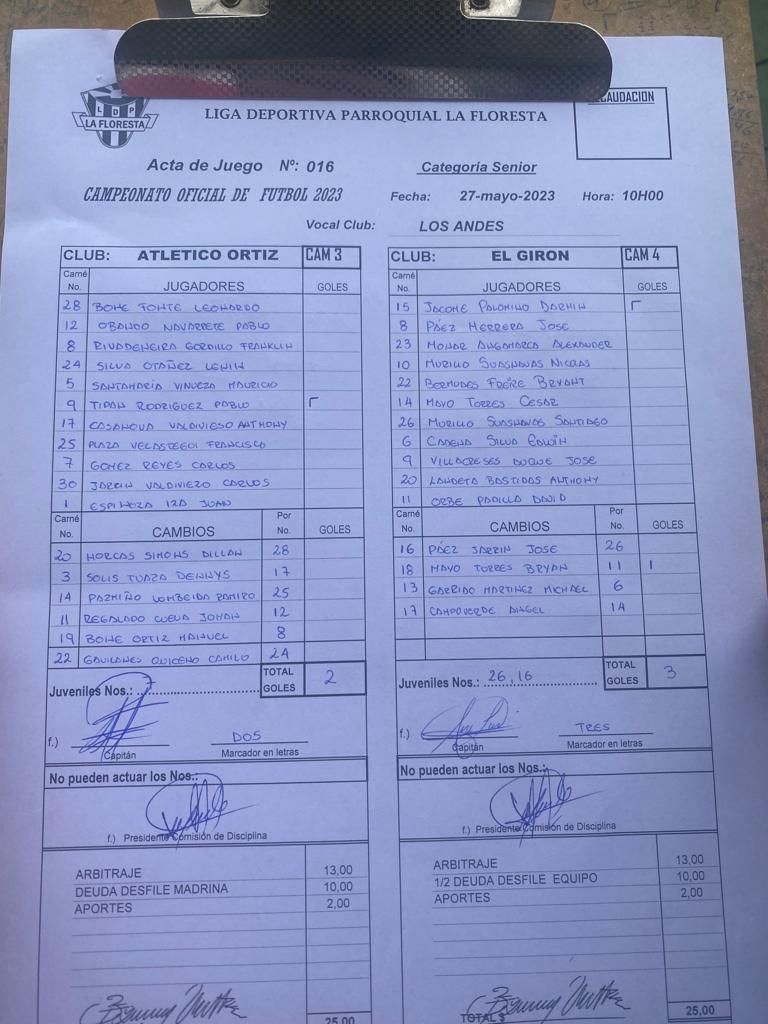 CAUDACION
L D P
LA FLORESTA
LIGA DEPORTIVA PARROQUIAL LA FLORESTA
Acta de Juego Nº: 016 Categoría Senior
CAMPEONATO OFICIAL DE FUTBOL 2023 Fecha: 27-mayo-2023 Hora: 10H00
Vocal Club: LOS ANDES
CLUB: ATLETICO ORTIZ CAM 3
Carné No. JUGADORES GOLES
28 BONE FONTE LEONARDO
12 OBANDO NAVARRETE PABLO
8 RIVADENEIRA GORDILLO FRANKLIN
24 SILVA OTAÑEZ LENIN
5 SANTAMARIA VINUEZA MAURICIO
9 TIPAN RODRIGUEZ PABLO
17 CASANOVA VALDIVIESO ANTHONY
25 PLAZA VELASTEGUI FRANCISCO
7 GOMEZ REYES CARLOS
30 JARRIN VALDIVIEZO CARLOS
1 ESPINOZA IZA JUAN
Carné No. CAMBIOS Por No. GOLES
20 HORCAS SIMONS DILLAN 28
3 SOLIS TUAZA DENNYS 17
14 PAZMIÑO LOMBEIDA RAMIRO 25
11 REGALADO CUEVA JOHAN 12
19 BONE ORTIZ MANUEL 8
22 GAVILANES QUICENO CAMILO 24
Juveniles Nos.: 7 TOTAL GOLES 2
f.) Capitán
DOS
Marcador en letras
No pueden actuar los Nos.:
f.) Presidente Comisión de Disciplina
ARBITRAJE 13,00
DEUDA DESFILE MADRINA 10,00
APORTES 2,00
25,00
CLUB: EL GIRON CAM 4
Carné No. JUGADORES GOLES
15 JACOME PALOMINO DARWIN
8 PÁEZ HERRERA JOSE
23 MONAR ANGAMARCA ALEXANDER
10 MURILLO SUASNAVAS NICOLAS
22 BERMUDES FREIRE BRYANT
14 MAYO TORRES CESAR
26 MURILLO SUASNAVAS SANTIAGO
6 CADENA SILVA EDWIN
9 VILLACRESES DUQUE JOSE
20 LANDETA BASTIDAS ANTHONY
11 ORBE PADILLA DAVID
Carné No. CAMBIOS Por No. GOLES
16 PÁEZ JARRIN JOSE 26
18 MAYO TORRES BRYAN 11 1
13 GARRIDO MARTINEZ MICHAEL 6
17 CAMPOVERDE ANGEL 14
Juveniles Nos.: 26,16 TOTAL GOLES 3
f.) Capitán
TRES
Marcador en letras
No pueden actuar los Nos.:
f.) Presidente Comisión de Disciplina
ARBITRAJE 13,00
1/2 DEUDA DESFILE EQUIPO 10,00
APORTES 2,00
TOTAL $ 25,00